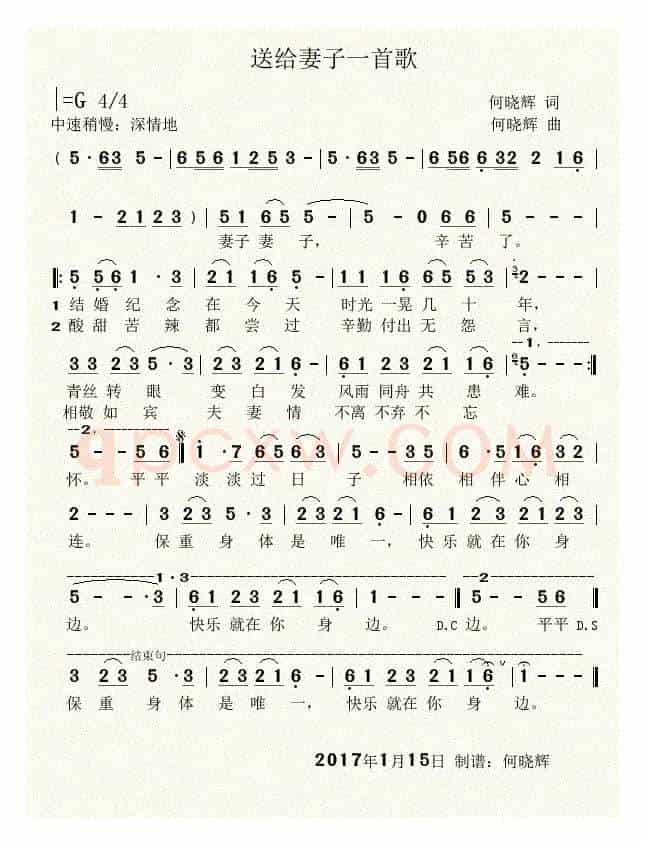 送给妻子一首歌
1=G 4/4
何晓辉 词
中速稍慢：深情地
何晓辉 曲
( 5·63 5-|656 1253-|5·635-|656632 2 16|
1-2123)|51 65 5-|5-0 66|5---|
妻子 妻 子， 辛 苦 了。
‖:5 561·3|21 165-|11 166553|2---|
1 结 婚 纪 念 在 今 天 时光 一晃 几 十 年，
2 酸 甜 苦 辣 都 尝 过 辛勤 付出 无 怨 言，
--1.-------
33 235·3|23 216-|61 2321 16|5--- :‖
青丝 转 眼 变 白 发 风雨 同舟 共 患 难。
相敬 如 宾 夫 妻 情 不离 不弃 不 忘
--2.----------
5--56‖1·76563|5--35|6·51632|
怀。 平 平 淡 淡 过 日 子 相依 相 伴 心 相
2---|3 235·3|23 216-|61 2323 5|
连。 保 重 身 体 是 唯 一， 快 乐 就 在 你 身
----------1·3----------
--2------------
5--·3|61 2321 16|1---‖5--56‖
边。 快乐 就在 你 身 边。 D.C 边。 平平 D.S
--------结束句----------
3 23 5·3|23 216-|61 2321 16|1---‖
保 重 身 体 是 唯 一， 快乐 就在 你 身 边。
2017年1月15日 制谱：何晓辉
qpcxw.COM